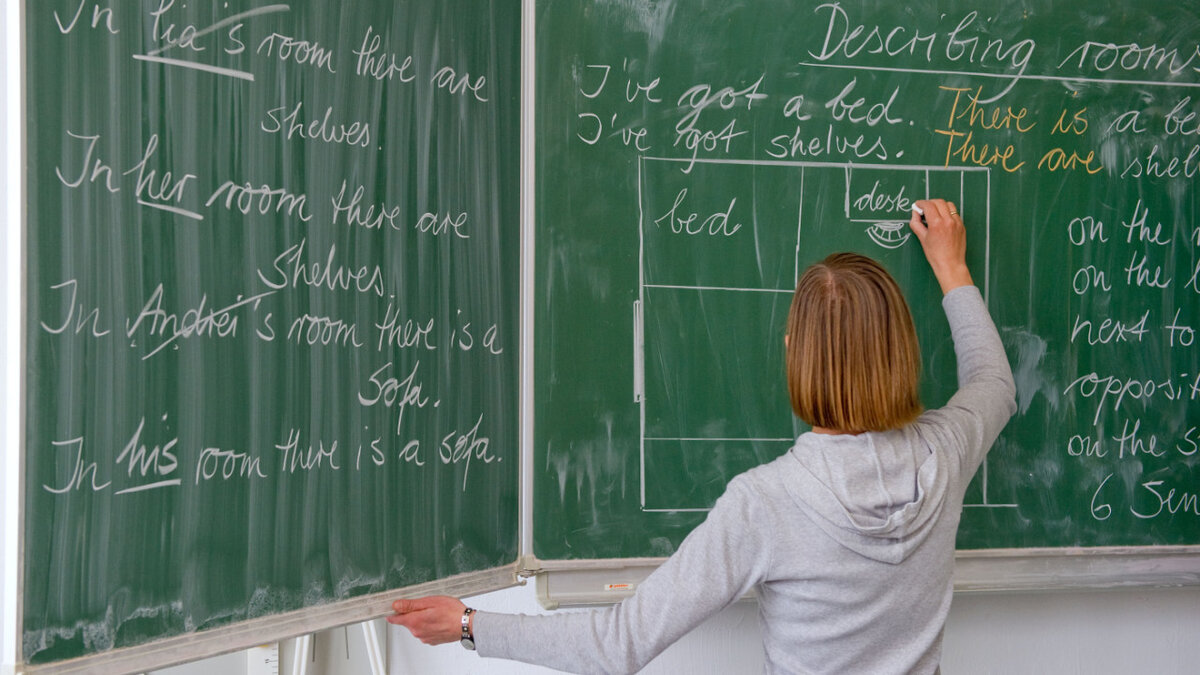 In Pia's room there are
shelves.
In her room there are
shelves.
In Andrei's room there is a
Sofa.
In his room there is a sofa.
Describing rooms
I've got a bed. There is a be
I've got shelves. There are shel
bed
desk
on the
on the
next to
opposit
on the s
6 Sen